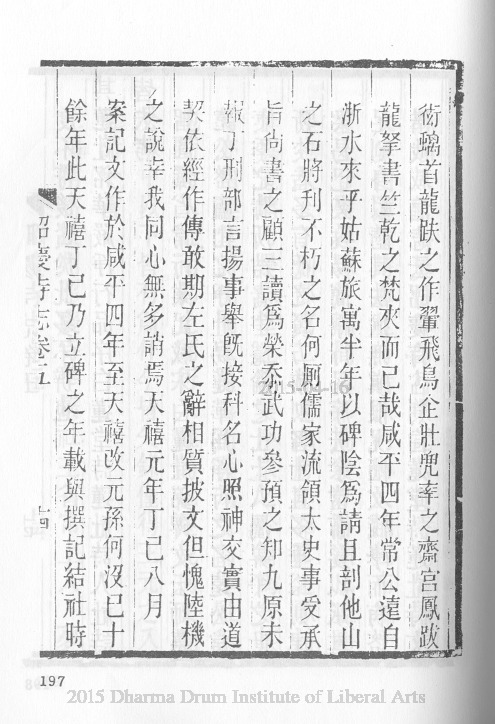 銜螭首龍趺之作翬飛鳥企壯兜率之齋宮鳳跋
龍拏書竺乾之梵夾而已哉咸平四年常公遠自
浙水來乎姑蘇旅寓半年以碑陰爲請且剖他山
之石將刊不朽之名何厠儒家流領太史事受承
旨尚書之顧三讀爲榮忝武功參預之知九原未
報丁刑部言揚事舉旣接科名心照神交實由道
契依經作傳敢期左氏之辭相質披文但愧陸機
之說幸我同心無多誚焉天禧元年丁巳八月
案記文作於咸平四年至天禧改元孫何沒已十
餘年此天禧丁巳乃立碑之年載與撰記結社時
昭慶寺志卷五
十四
197
2015-04-16
2015 Dharma Drum Institute of Liberal Arts